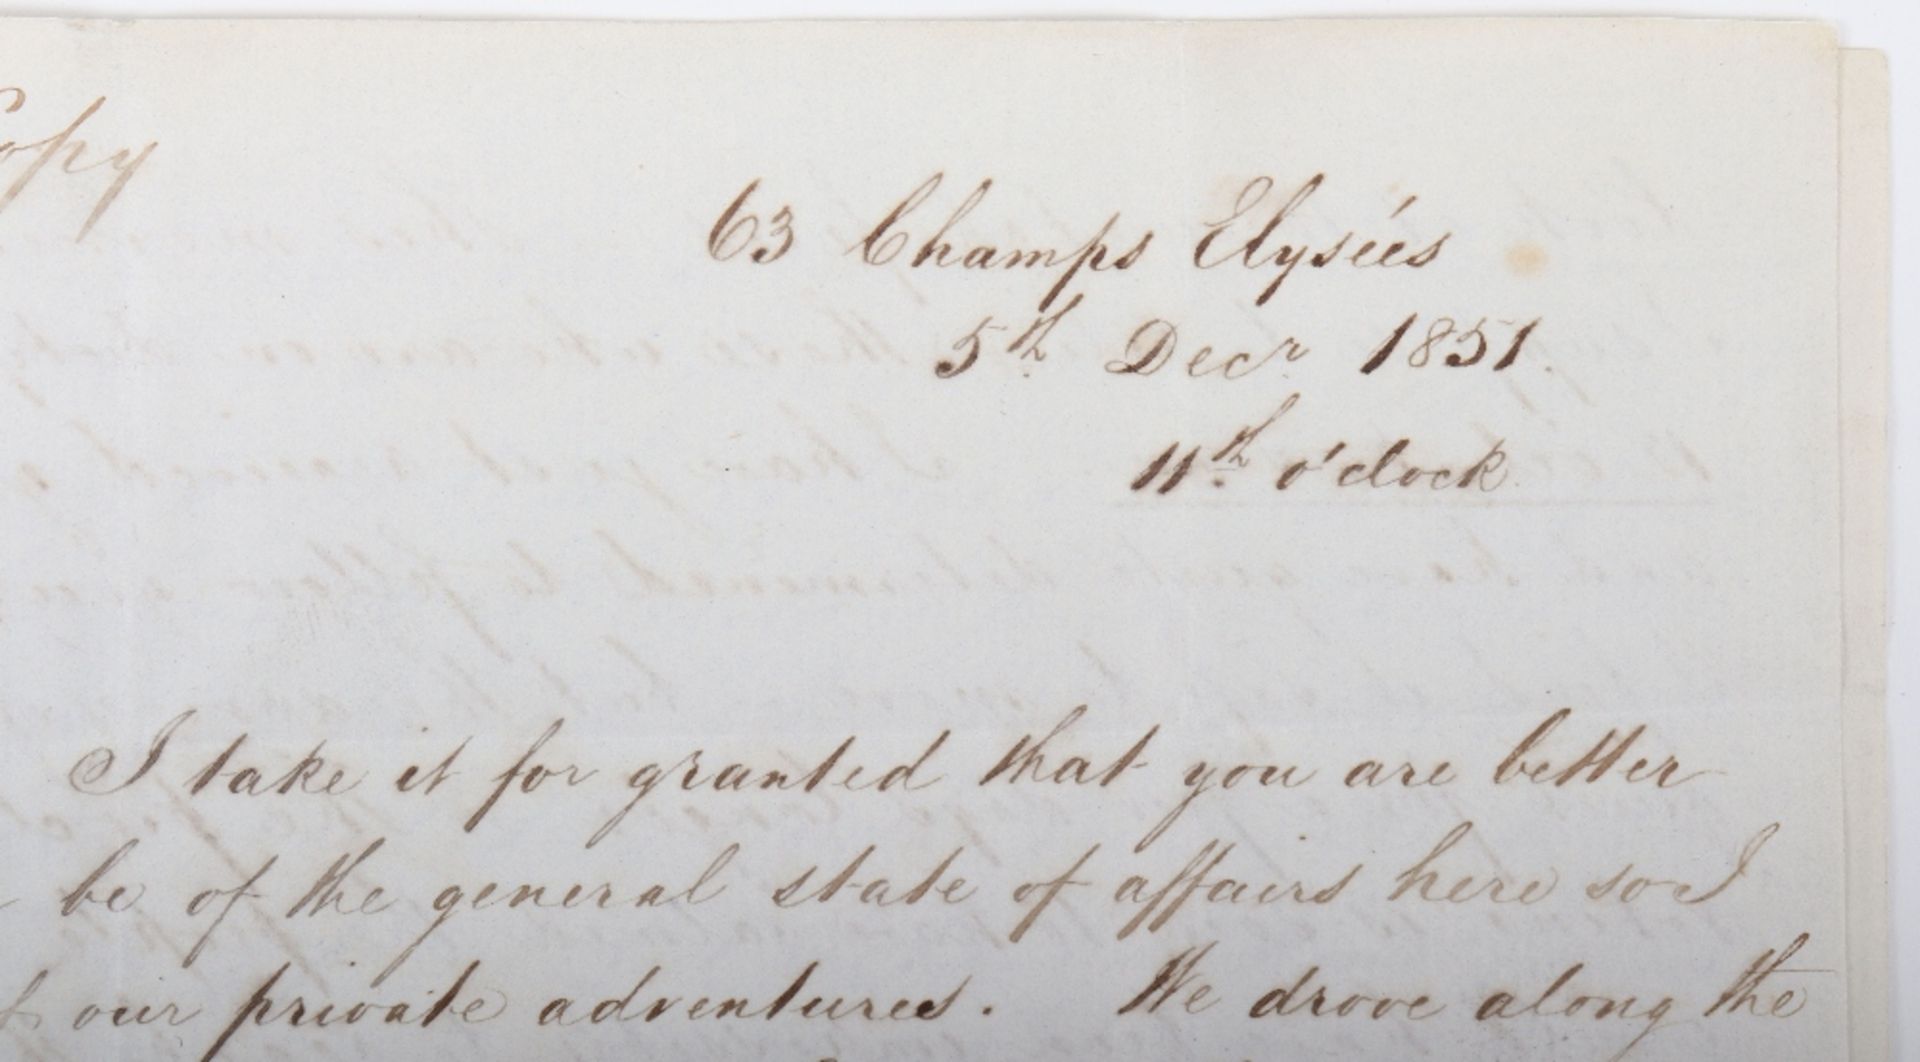 Copy
63 Champs Elysées
5th Decr 1851.
11th o'clock.
I take it for granted that you are better
be of the general state of affairs here so I
our private adventures. We drove along the